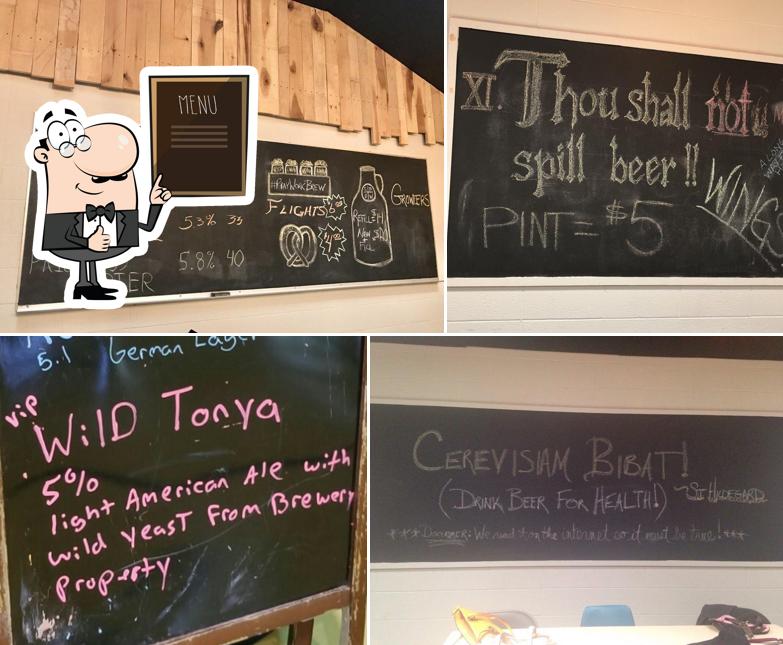 MENU
#PRAYWORKBREW
FLIGHTS
GROWLERS
5.3% 35
5.8% 40
REFILL $11
NEW $20
FILL
TER
XI. Thou shall not
spill beer!!
PINT = $5
WINGS
5.1 German Lager
vip
WilD Tonya
5%
light American Ale with
wild yeasT From Brewery
property
CEREVISIAM BIBAT!
(DRINK BEER FOR HEALTH!) ~ST HILDEGARD
***DISCLAIMER: We read it on the internet so it must be true!***